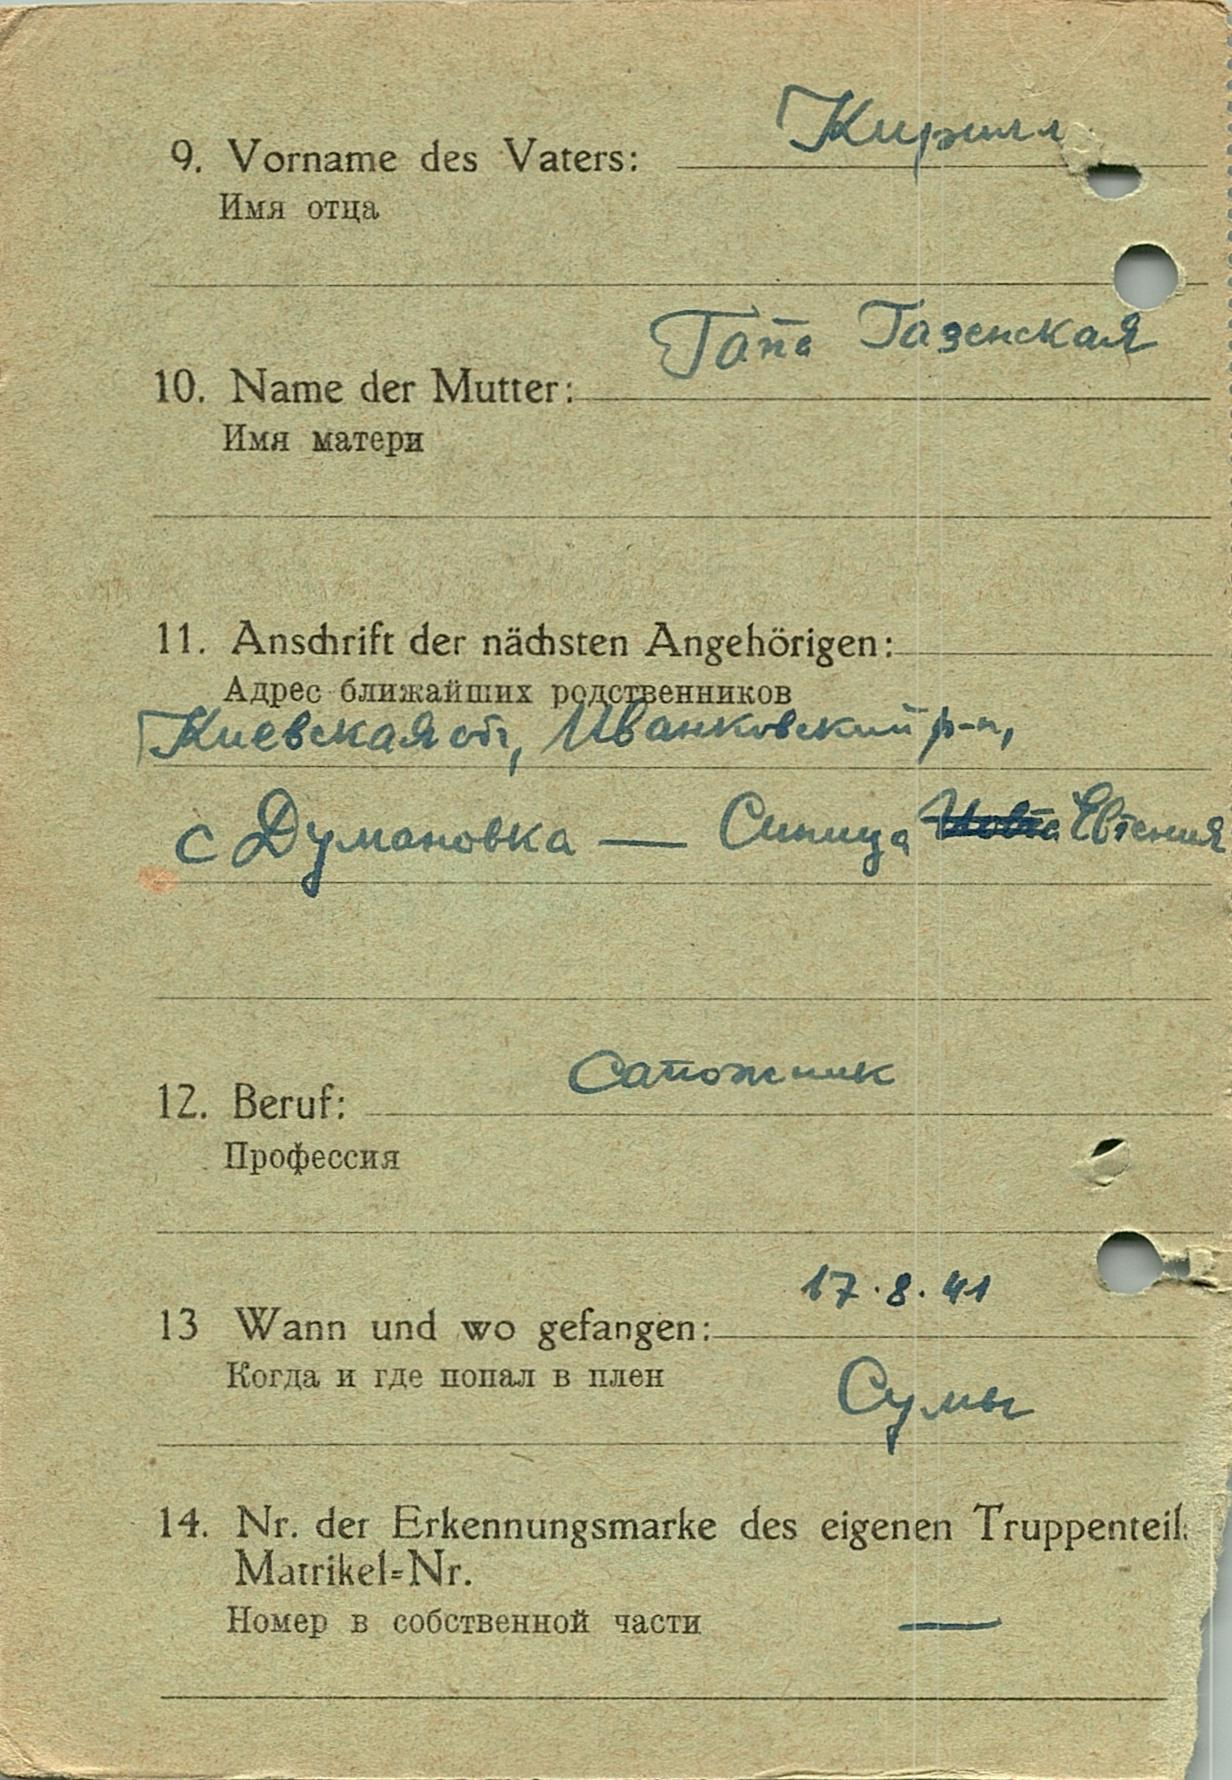 Кирилл
9. Vorname des Vaters:
Имя отца
Гапа Газенская
10. Name der Mutter:
Имя матери
11. Anschrift der nächsten Angehörigen:
Адрес ближайших родственников
Киевская об, Иванковский р-н,
с Думановка — Синица Евгения
Сапожник
12. Beruf:
Профессия
17.8.41
13 Wann und wo gefangen:
Когда и где попал в плен
Сумы
14. Nr. der Erkennungsmarke des eigenen Truppenteil:
Matrikel=Nr.
Номер в собственной части —